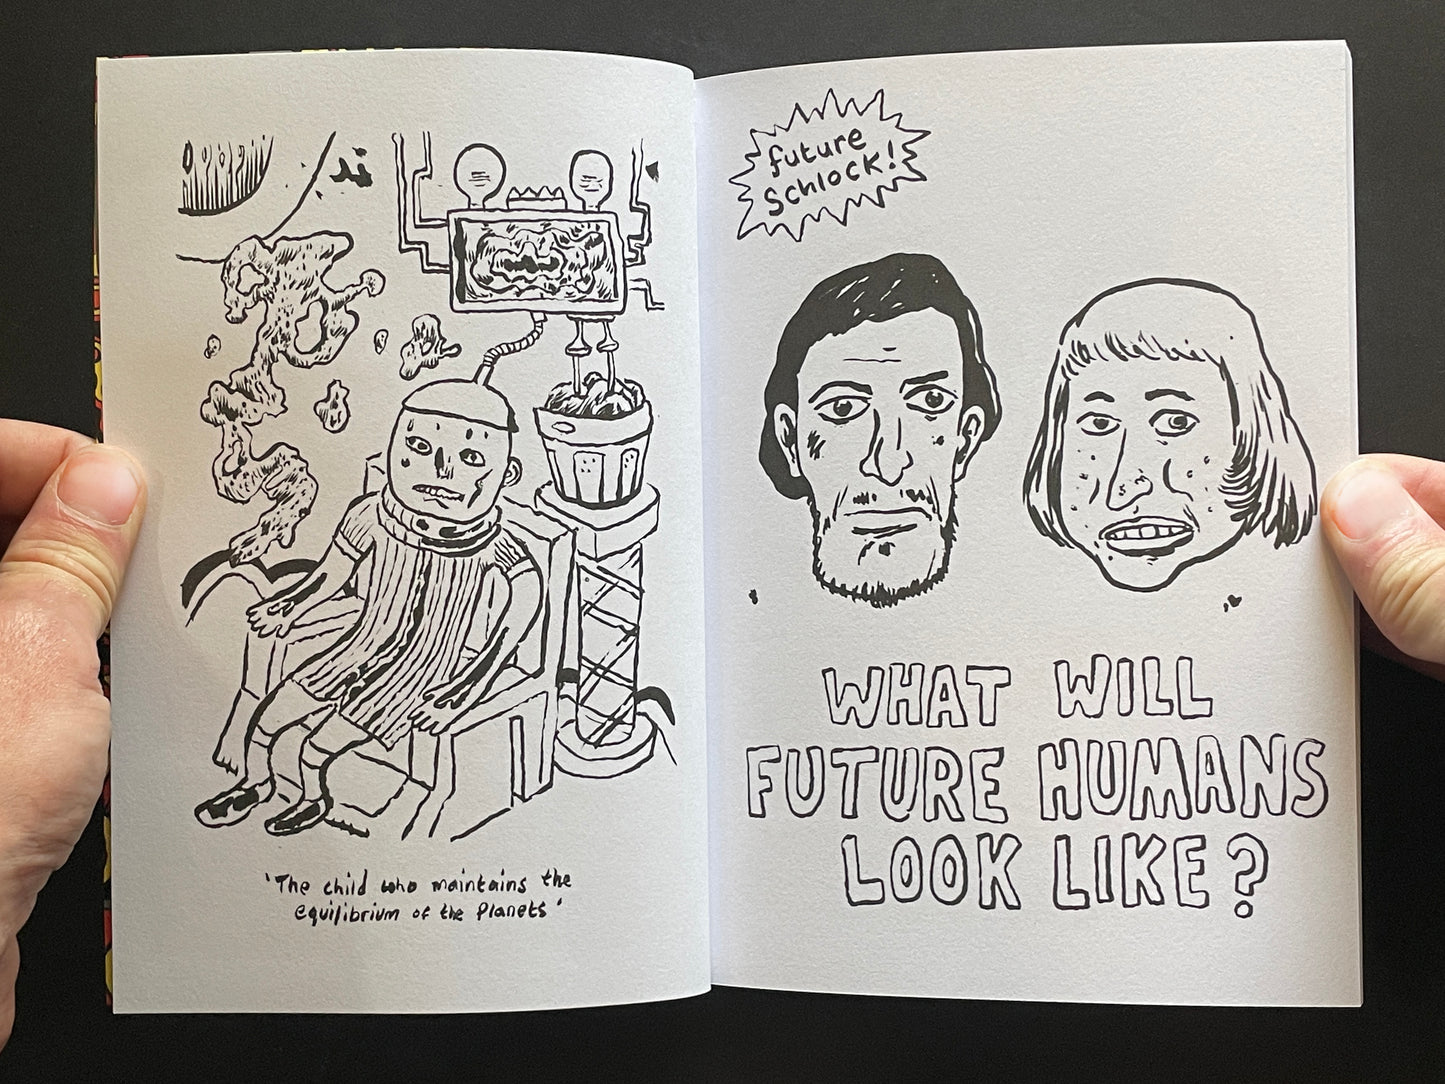 'The child who maintains the
equilibrium of the Planets'
future
Schlock!
WHAT WILL
FUTURE HUMANS
LOOK LIKE?